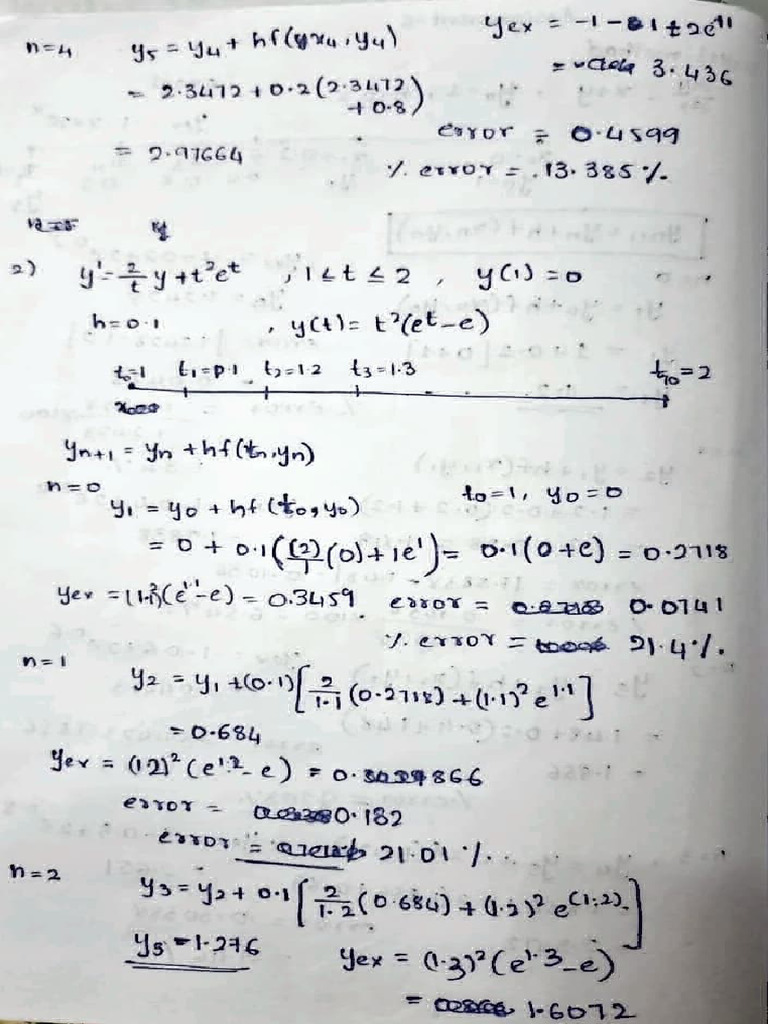 n=4 y5 = y4 + hf(x4, y4) yex = -1-1+2e^1
= 2.3472 + 0.2(2.3472 + 0.8) = 3.436
= 2.97664 error = 0.4599
% error = 13.385%
2) y' = 2/t y + t²e^t , 1 ≤ t ≤ 2 , y(1) = 0
h=0.1 , y(t) = t²(e^t - e)
t0=1 t1=1.1 t2=1.2 t3=1.3 t10=2
yn+1 = yn + hf(tn, yn)
n=0 t0=1, y0=0
y1 = y0 + hf(t0, y0)
= 0 + 0.1((2)/1 (0) + 1e^1) = 0.1(0+e) = 0.2718
yex = (1.1)²(e^1.1 - e) = 0.3459 error = 0.0741
% error = 21.4%.
n=1 y2 = y1 + (0.1)[2/1.1 (0.2718) + (1.1)² e^1.1]
= 0.684
yex = (1.2)² (e^1.2 - e) = 0.866
error = 0.182
error = 21.01%.
n=2 y3 = y2 + 0.1[2/1.2 (0.684) + (1.2)² e^(1.2)]
y3 = 1.276 yex = (1.3)² (e^1.3 - e)
= 1.6072